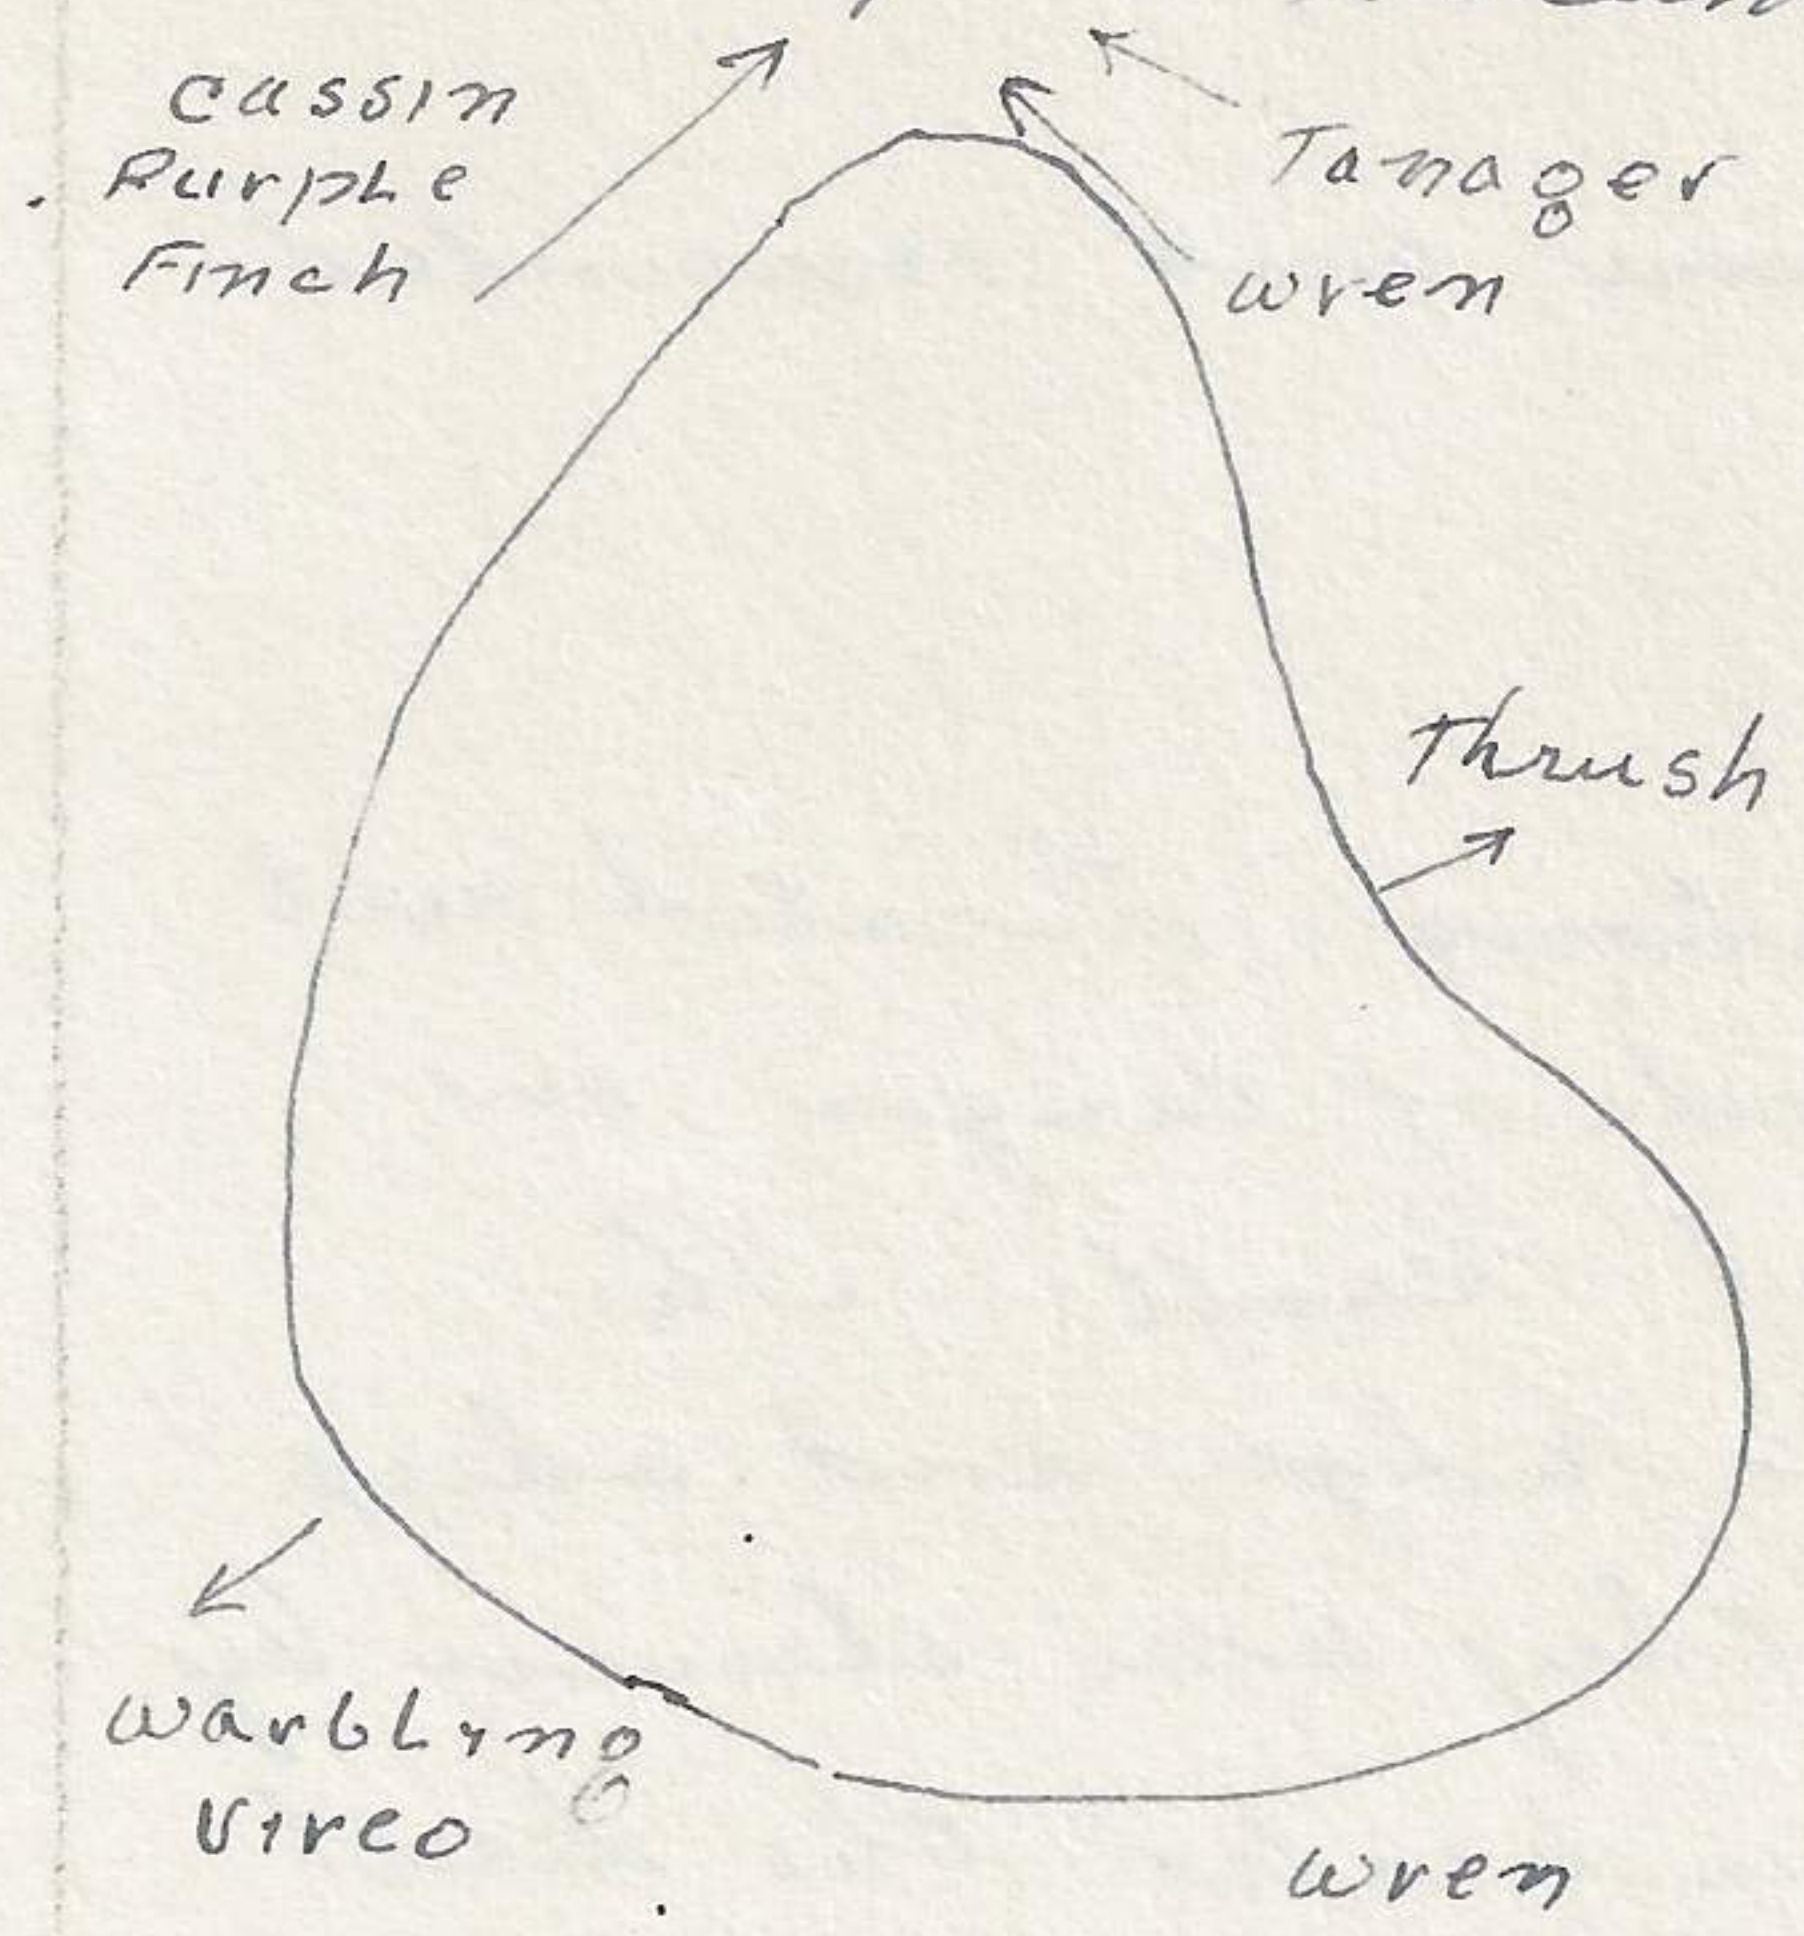 Cassin
Purple
Finch
Tanager
wren
Thrush
Warbling
Vireo
wren